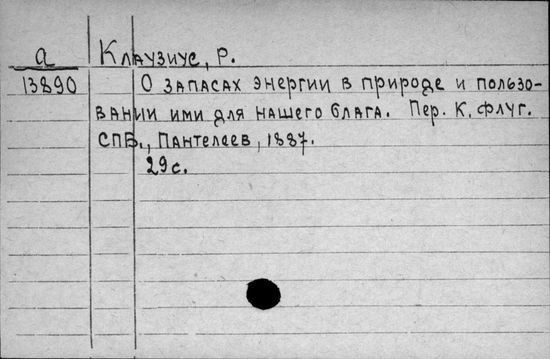 а Клаузиус, Р.
13890 О запасах энергии в природе и пользо-
вании ими для нашего блага. Пер. К. Флуг.
СПБ., Пантелеев, 1887.
29 с.